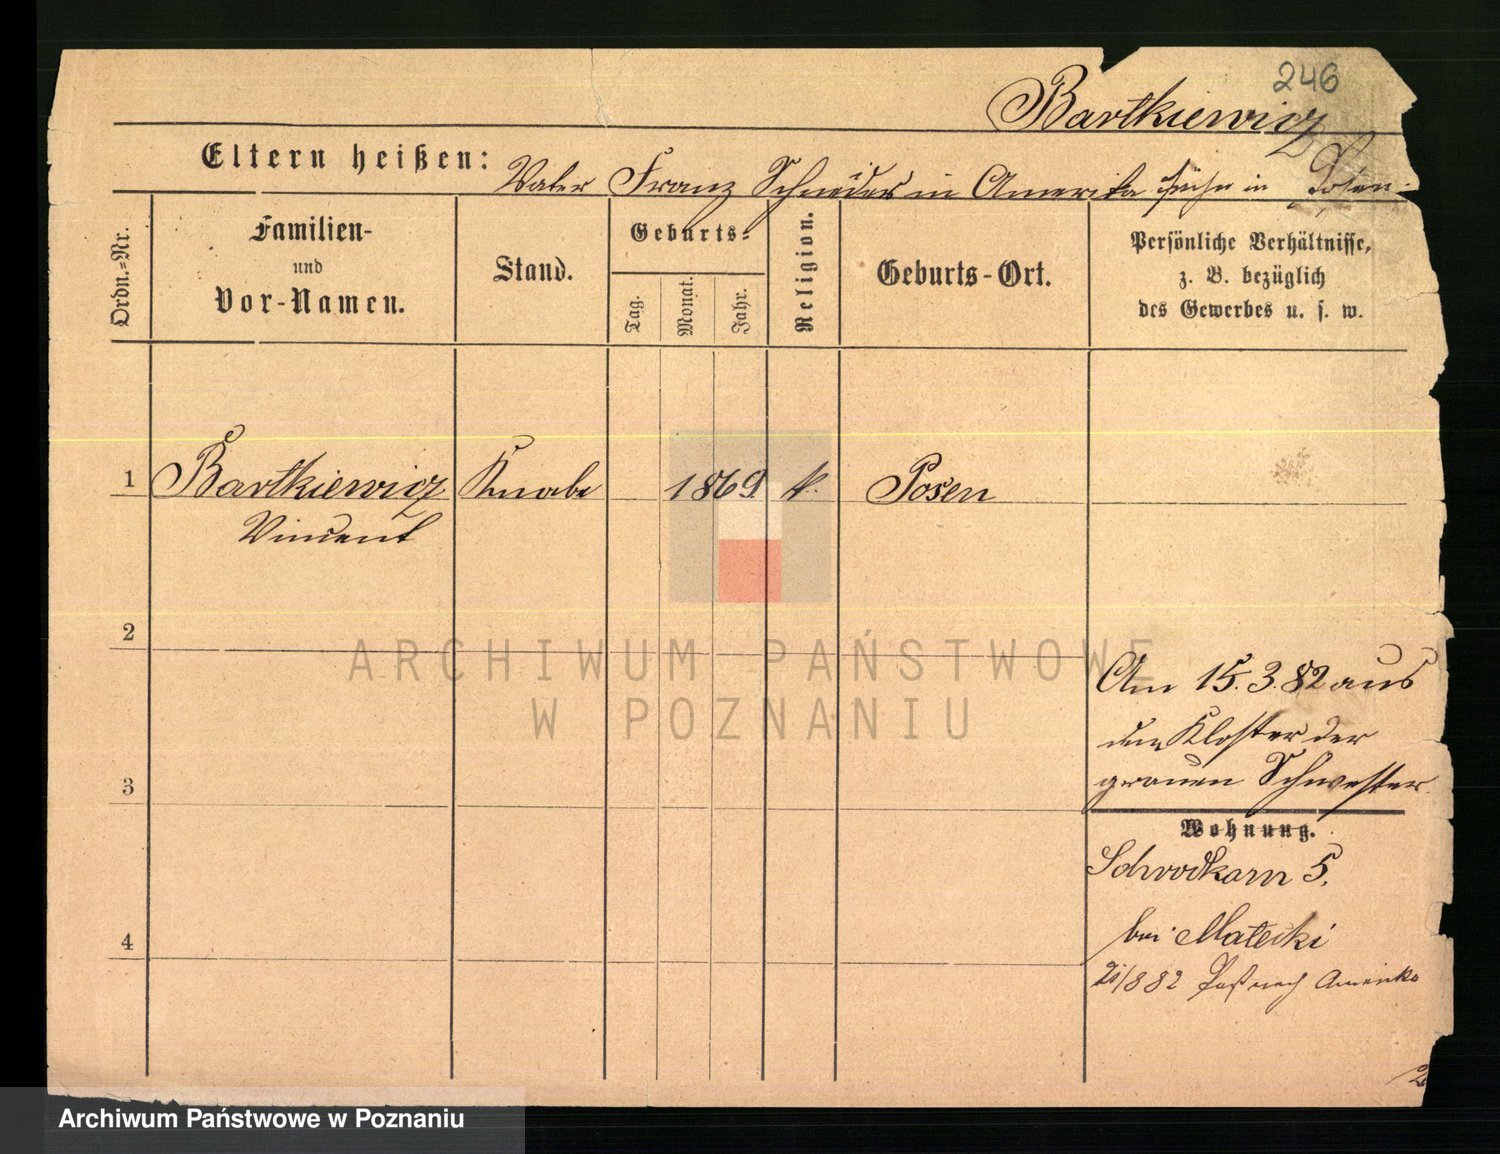 246
Bartkiewicz
Eltern heißen: Vater Franz Schneider in Amerika früher in Posen.
Ordn.=Nr.
Familien-
und
Vor-Namen.
Stand.
Geburts=
Tag.
Monat.
Jahr.
Religion.
Geburts-Ort.
Persönliche Verhältnisse,
z. B. bezüglich
des Gewerbes u. s. w.
1 Bartkiewicz Knabe 1869 k. Posen
Vincent
2
ARCHIWUM PAŃSTWOWE
W POZNANIU
Am 15.3.82 aus
dem Kloster der
grauen Schwester
3
Wohnung.
5.
bei Matecki
4
21/8 82 Paß nach Amerika
Archiwum Państwowe w Poznaniu